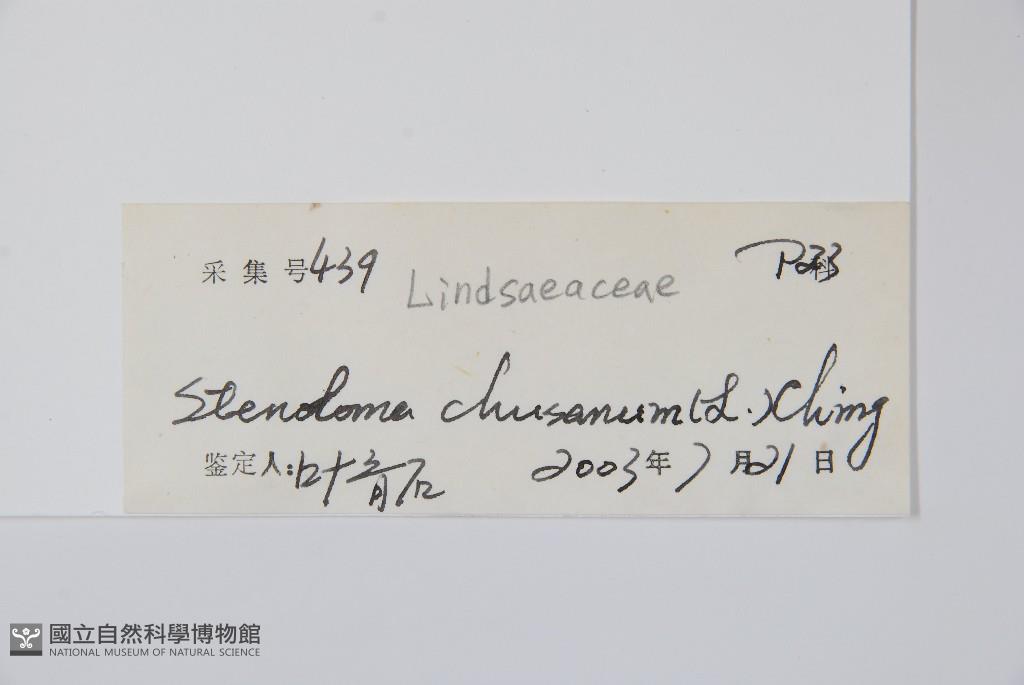 采集号439 Lindsaeaceae P233 科
Stenoloma chusanum (L.) Ching
鉴定人: 叶育石 2003年7月21日
國立自然科學博物館
NATIONAL MUSEUM OF NATURAL SCIENCE